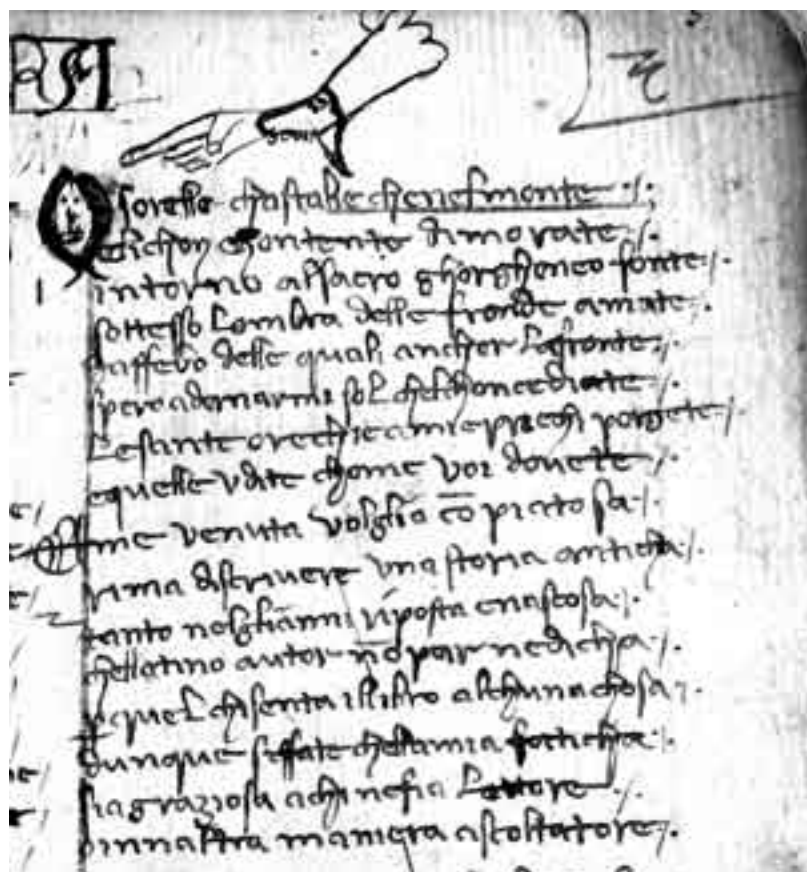 O sorelle chastalie chenelmonte ./.
elichon chontente dimorate ./.
intorno alsacro ghorghoneo fonte ./.
sottesso Lombra delle fronde amate ./.
daffebo delle quali ancher Lafronte ./.
spero adornarmi sol chelchoncediate ./.
Lesante orechie amie prieghi porgete ./.
equelle vdite chome voi dovete ./.
me venuta volglia cō piatosa ./.
rima discriuere vna storia anticha ./.
tanto nelglianni riposta enascosa ./.
chellatino autor nō par nedicha ./.
pquel chisenta illibro alchuna chosa ./.
dunque siffate chellamia faticha ./.
siagraziosa achi nefia Lettore ./.
oinnaltra maniera ascoltatore ./.